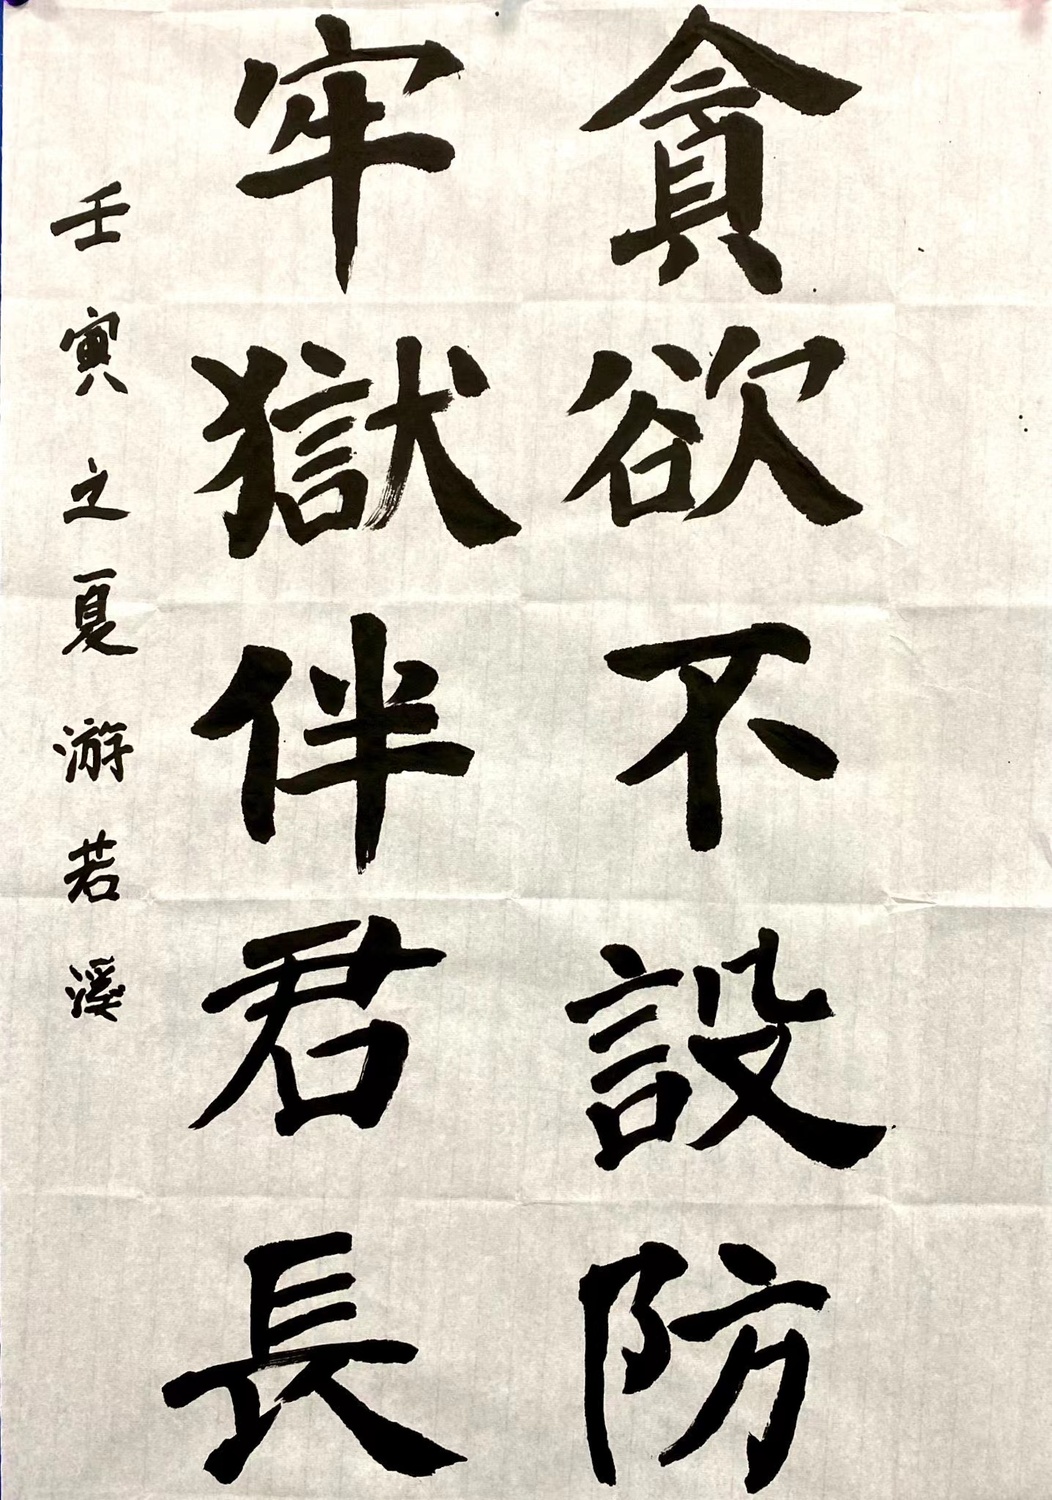 貪欲不設防
牢獄伴君長
壬寅之夏游若溪